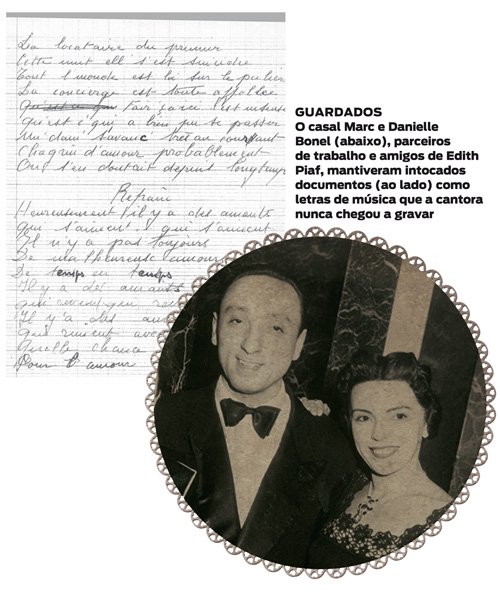 La locataire du premier
Cette nuit ell s'est suicidée
Tout l'monde est là sur le palier
La concierge est toute affollée
Qu'est ce qui a bien pu se passer
Chagrin d'amour probablement
On s'en doutait depuis longtemps
Refrain
Heureusement qu'il y a des amants
qui s'aiment, qui s'aiment
Il n'y a pas toujours
De malheureuse amours
De temps en temps
Il y a des amants
Il y'a des
Qui
chance
Pour l'amour
GUARDADOS
O casal Marc e Danielle
Bonel (abaixo), parceiros
de trabalho e amigos de Edith
Piaf, mantiveram intocados
documentos (ao lado) como
letras de música que a cantora
nunca chegou a gravar